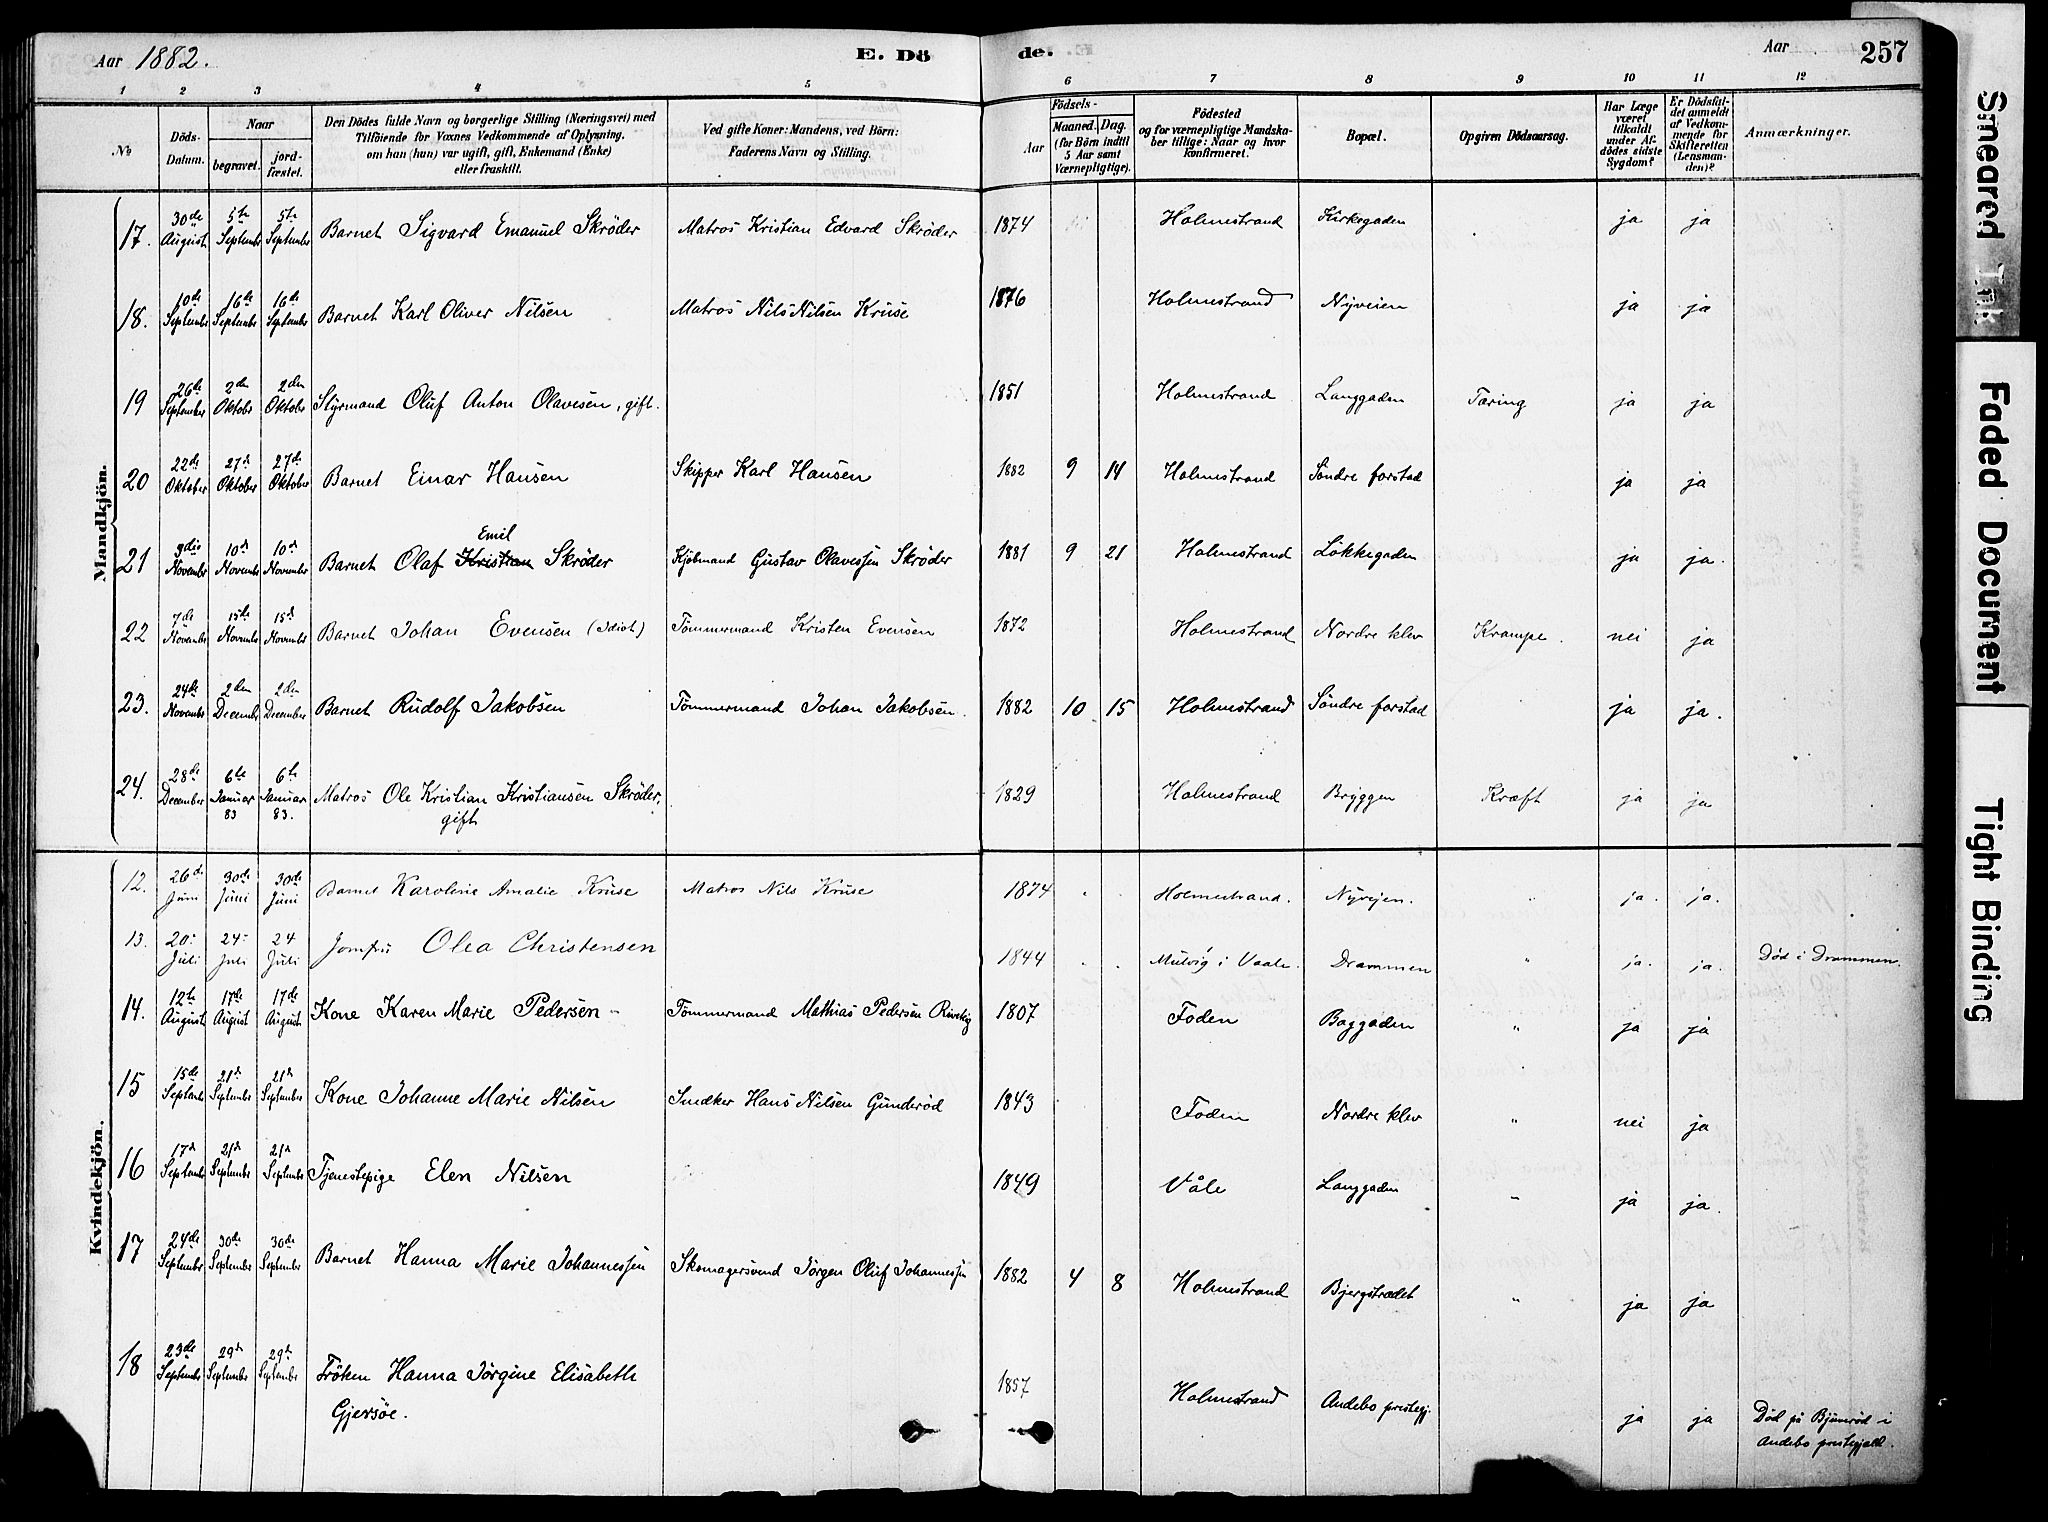 Aar 1882.
E. Dö
de.
Aar
257
1 2 3 4 5 6 7 8 9 10 11 12
№
Döds-Datum.
Naar
begravet.
jord-fæstet.
Den Dödes fulde Navn og borgerlige Stilling (Næringsvei) med
Tilföiende for Voxnes Vedkommende af Oplysning,
om han (hun) var ugift, gift, Enkemand (Enke)
eller fraskilt.
Ved gifte Koner: Mandens, ved Börn:
Faderens Navn og Stilling.
Födsels-
Aar
Maaned. Dag.
(for Börn indtil
5 Aar samt
Værnepligtige).
Födested
og for værnepligtige Mandska-
ber tillige: Naar og hvor
konfirmeret.
Bopæl.
Opgiven Dödsaarsag.
Har Læge
været
tilkaldt
under Af-
dödes sidste
Sygdom?
Er Dödsfal-
det anmeldt
af Vedkom-
mende for
Skifteretten
(Lensman-
den)?
Anmærkninger.
Mandkjön.
17. 30de August 5te September 5te September Barnet Sigvard Emanuel Skrøder Matros Kristian Edvard Skrøder 1874 Holmestrand Kirkegaden ja ja
18. 10de September 16de September 16de September Barnet Karl Oliver Nilsen Matros Nils Nilsen Kruse 1876 Holmestrand Nyveien ja ja
19 26de September 2den Oktobr 2den Oktober Styrmand Oluf Anton Olavesen, gift. 1851 Holmestrand Langgaden Tæring ja ja
20 22de Oktober 27de Oktober 27de Oktober Barnet Einar Hansen Skipper Karl Hansen 1882 9 14 Holmestrand Søndre forstad ja ja
21 3die November 10de November 10de November Barnet Olaf Kristian Emil Skrøder Kjøbmand Gustav Olavessen Skrøder 1881 9 21 Holmestrand Løkkegaden ja ja.
22 7de November 15de November 15de November Barnet Johan Evensen (Idiot) Tømmermand Kristen Evensen 1872 Holmestrand Nordre klev Krampe. nei ja
23. 24de November 2den December 2den December Barnet Rudolf Jakobsen Tømmermand Johan Jakobsen. 1882 10 15 Holmestrand Søndre forstad ja ja.
24. 28de December 6te Januar 83 6te Januar 83. Matros Ole Kristian Kristiansen Skrøder,
gift 1829 Holmestrand Bryggen Kræft ja ja
Kvindekjön.
12. 26de Juni 30de Juni 30de Juni Barnet Karoline Amalie Kruse Matros Nils Kruse 1874 Holmestrand. Nyvejen. " ja. ja.
13. 20- Juli 24- Juli 24 Juli Jomfru Olea Christensen 1844 Mulvig i Vaale. Drammen " ja. ja. Død i Drammen.
14. 12te August 17de August 17de August Kone Karen Marie Pedersen - Tømmermand Mathias Pedersen 1807 Foden Baggaden " ja ja
15 15de September 21de September 21de September Kone Johanne Marie Nilsen Snedker Hans Nilsen Gunderød 1843 Foden Nordre klev " nei ja
16 17de September 21de September 21de September Tjenestepige Elen Nilsen 1849 Våle Langgaden " ja ja.
17 24de September 30de September 30de September Barnet Hanna Marie Johannessen Skomagersvend Jørgen Oluf Johannessen 1882 4 8 Holmestrand Bjergstrædet " ja ja
18 23de September 29de September 29de September Frøken Hanna Jørgine Elisabeth
Gjersøe. 1857 Holmestrand Andebo prestegj. ja ja Død på Bjuerød i
Andebo prestegjeld.
Smeared Ink
Faded Document
Tight Binding